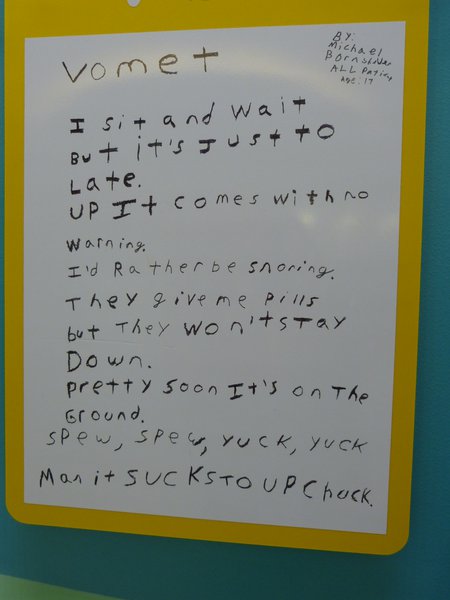 Vomet
BY:
Michael
ALL Patient
Age: 17
I sit and Wait
But it's Just to
Late.
UP It comes with no
warning.
I'd Rather be snoring.
They give me Pills
but They WON'T STAY
DOWN.
pretty soon It's on The
Ground.
SPew, SPew, YUCK, YUCK
Man it SUCKS TO UPChuck.